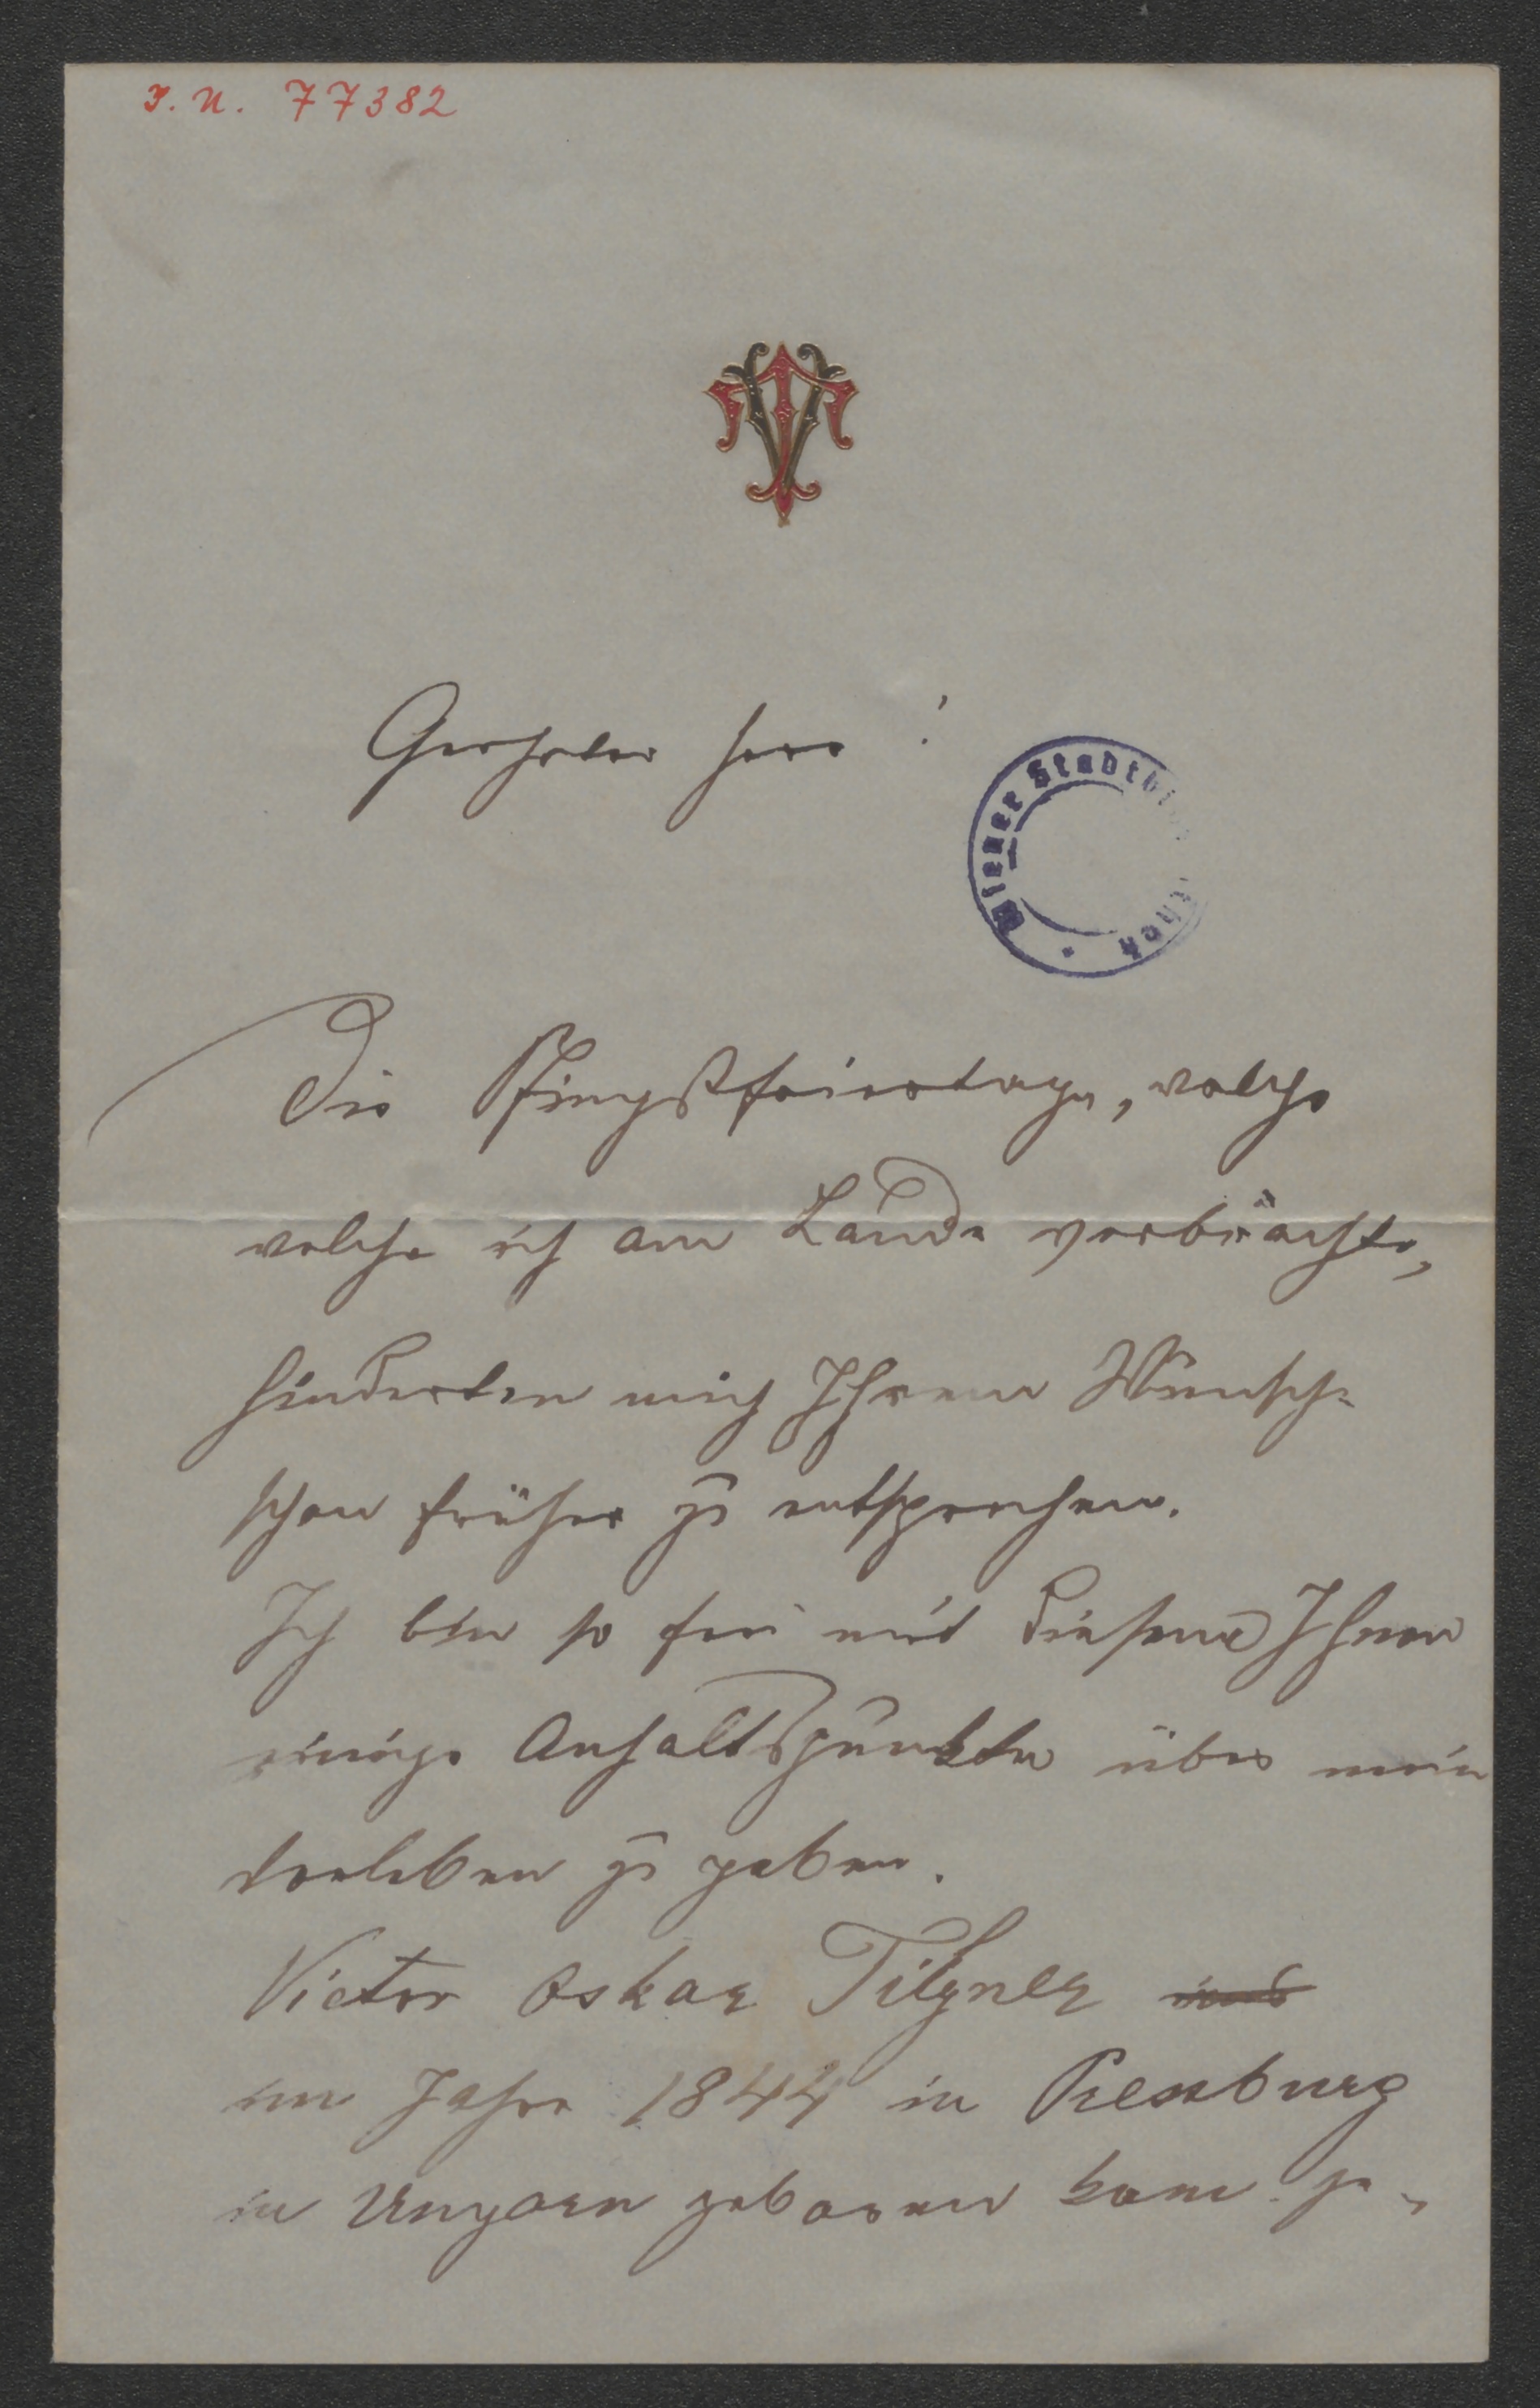 I. N. 77382
VT
Geehrter Herr!
Wiener Stadtbi thek
Die Pfingstfeiertage, welche
welche ich am Lande verbrachte,
hinderten mich Ihrem Wunsche
schon früher zu entsprechen.
Ich bin so frei mit diesem Ihnen
einige Anhaltspunkte über mein
zu geben.
Victor Oskar Tilgner
im Jahre 1844 in Pressburg
in Ungarn geboren kam